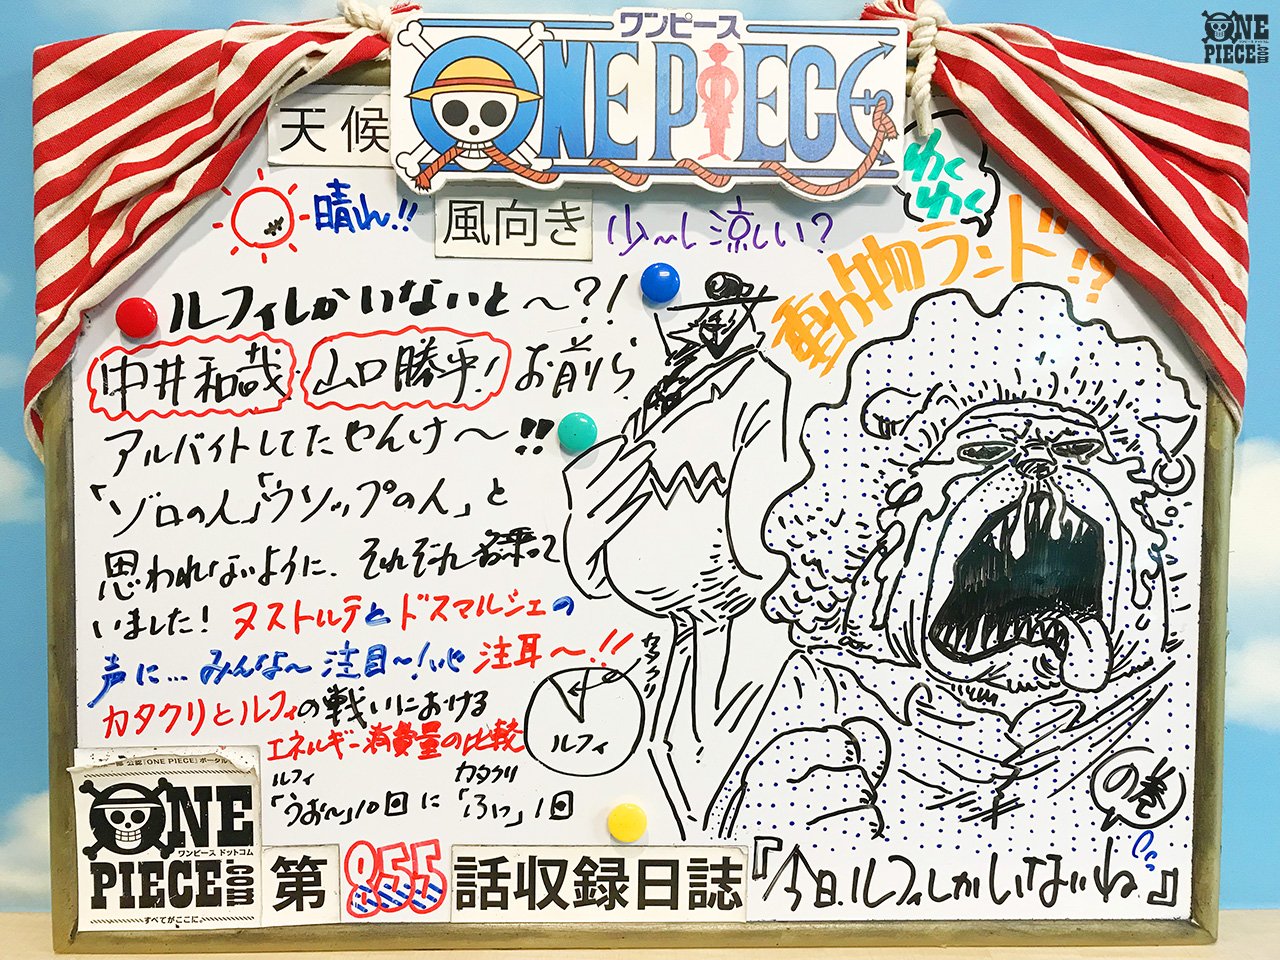 ワンピース
ONE PIECE
ONE PIECE.com
天候
晴れ!!
風向き
少〜し涼しい?
わくわく
動物ランド!?
ルフィしかいないと〜?!
中井和哉・山口勝平!お前ら
アルバイトしてたやんけ〜!!
「ゾロの人」「ウソップの人」と
思われないように、それぞれ名乗って
いました! ヌストルテとドスマルシェの
声に…みんな〜注目〜!いや注耳〜!!
カタクリとルフィの戦いにおける
エネルギー消費量の比較
カタクリ
ルフィ
ルフィ
「うお〜」10回に
カタクリ
「ふっ」1回
の巻
公認「ONE PIECE」ポータル
ONE
ワンピース ドットコム
PIECE.com
すべてがここに。
第855話収録日誌
『今日、ルフィしかいないね。』